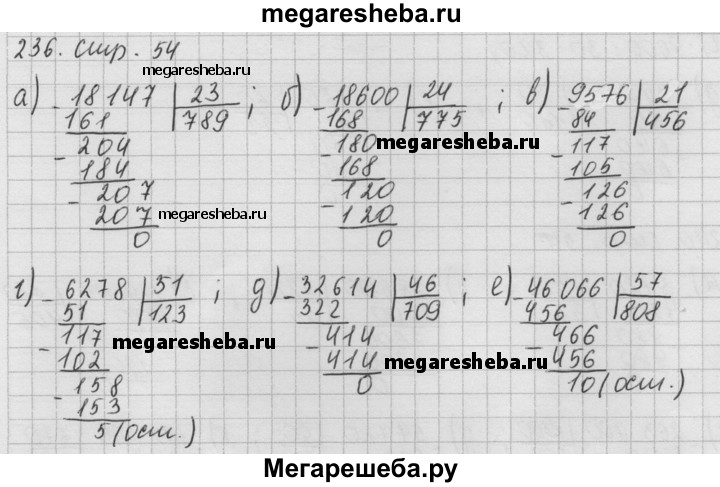 megaresheba.ru
236. Стр. 54
megaresheba.ru
а) -18147 | 23 ; б) -18600 | 24 ; в) -9576 | 21
161 789 168 775 84 456
-204 -180 megaresheba.ru -117
184 168 105
-207 -120 -126
207 megaresheba.ru 120 126
0 0 0
г) -6278 | 51 ; д) -32614 | 46 ; е) -46066 | 57
51 123 322 709 456 808
-117 -414 -466
102 megaresheba.ru 414 megaresheba.ru 456
-158 0 10 (ост.)
153
5 (ост.)
Мегарешеба.ру